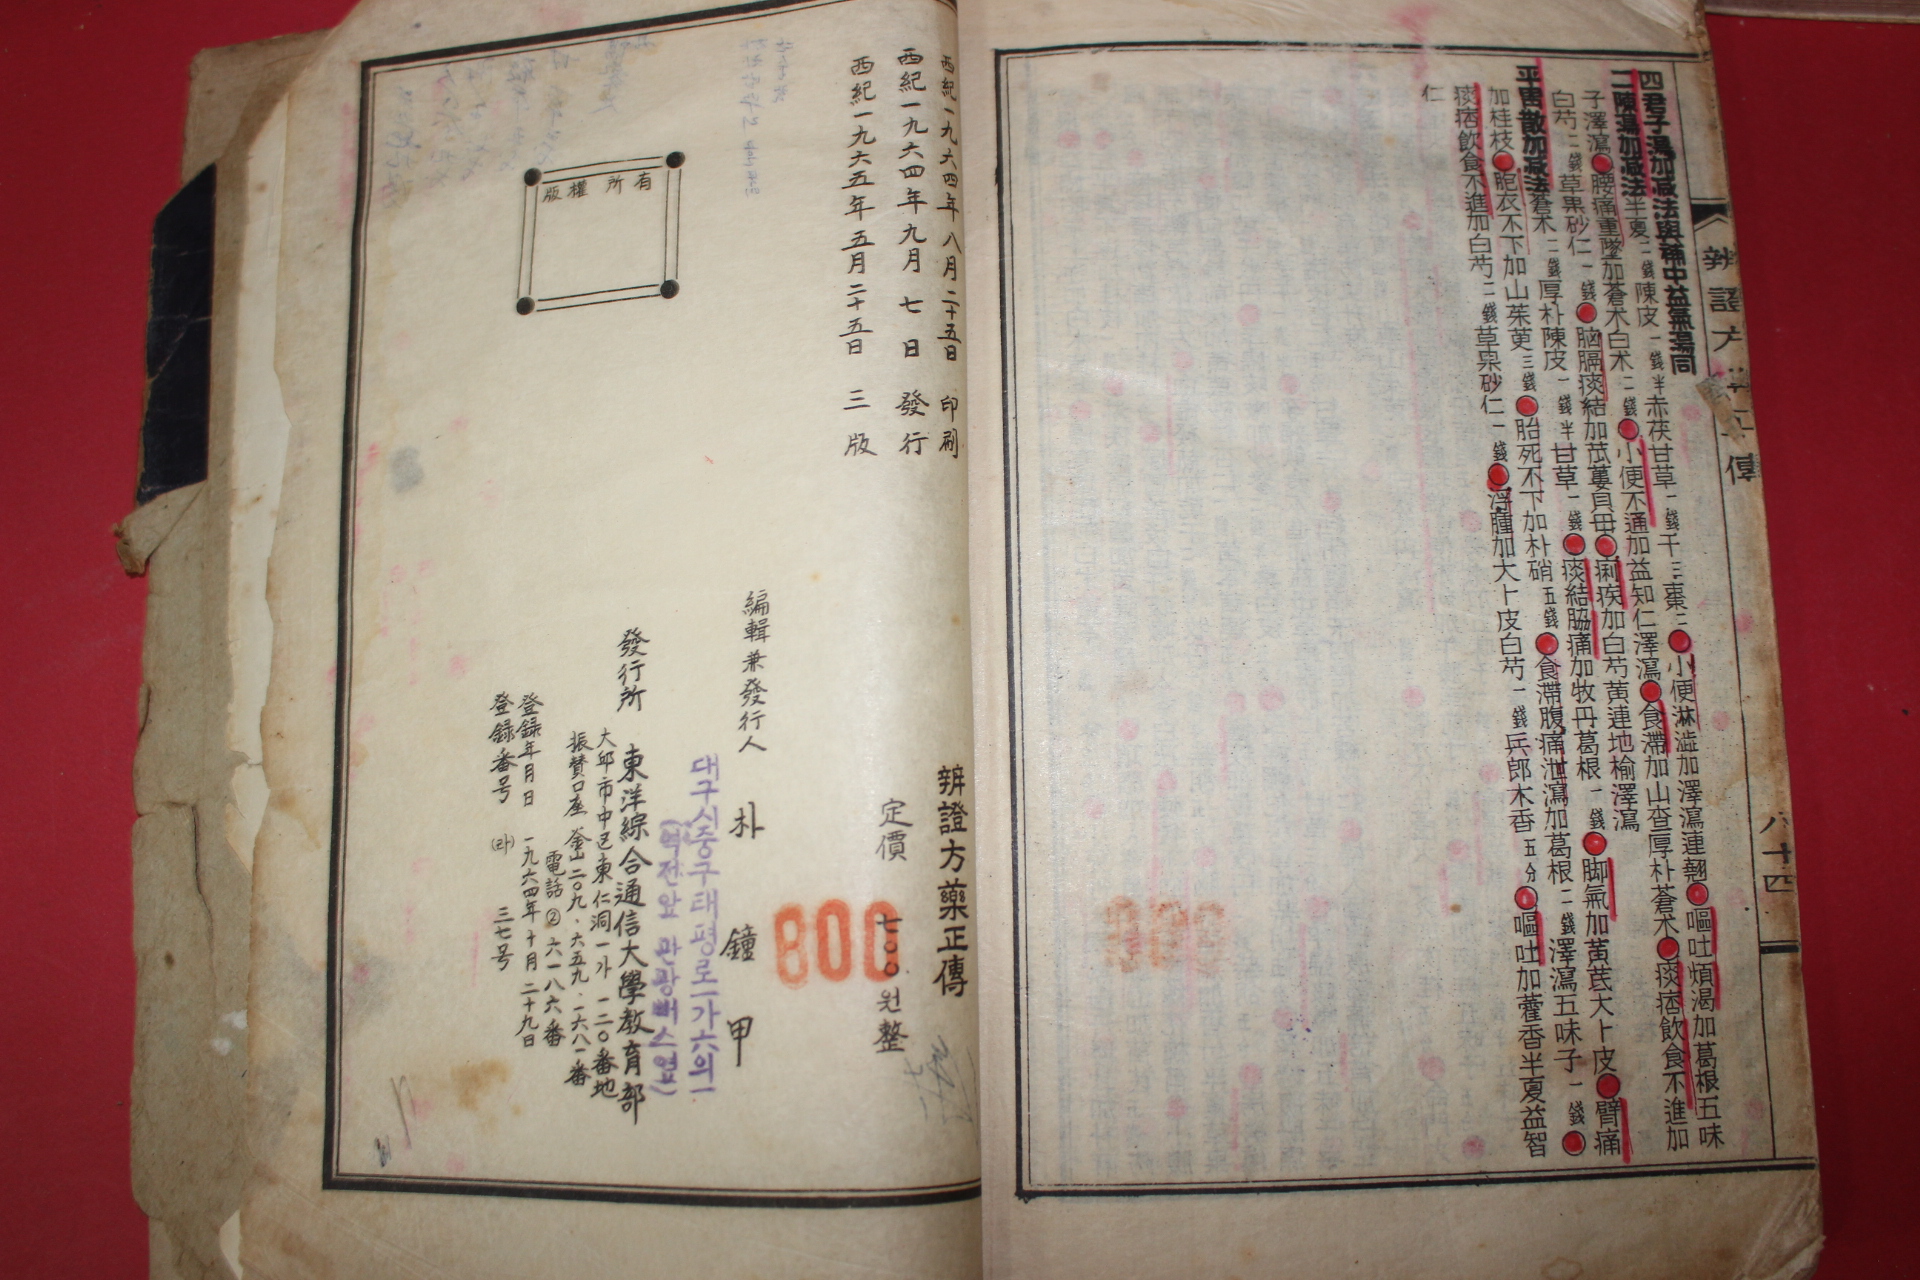 四君子湯加减法與補中益氣湯同
二陳湯加减法半夏二錢陳皮一錢半赤茯甘草一錢干三棗二●小便淋澁加澤瀉連翹●嘔吐煩渴加葛根五味
子澤瀉●腰痛重墜加蒼朮白朮二錢●小便不通加益知仁澤瀉●食滯加山查厚朴蒼朮●痰痞飮食不進加
白芍二錢草果砂仁一錢●脑膈痰結加苽蔞貝母●痢疾加白芍黄連地榆澤瀉
平胃散加减法蒼朮二錢厚朴陳皮一錢半甘草一錢●痰結脇痛加牧丹葛根一錢●脚氣加黃芪大卜皮●臂痛
加桂枝●胞衣不下加山茱萸三錢●胎死不下加朴硝五錢●食滯腹痛泄瀉加葛根二錢澤瀉五味子一錢●
痰痞飮食不進加白芍二錢草果砂仁一錢●浮腫加大卜皮白芍一錢兵郎木香五分●嘔吐加藿香半夏益智
仁
辨證方藥正傳
八十四
西紀一九六四年八月二十五日 印刷
西紀一九六四年九月七日 發行
西紀一九六五年五月二十五日 三版
版權所有
辨證方藥正傳
定價 七〇〇원整
800
編輯兼發行人 朴鐘甲
대구시중구태평로一가六의一
(역전앞 관광뻐스옆)
發行所 東洋綜合通信大學教育部
大邱市中区東仁洞一가 一二〇番地
振替口座 釜山 二〇九·六五九·一六八一番
電話 ② 六一八六番
登録年月日 一九六四年十月二十九日
登録番号 ㈑ 三七号